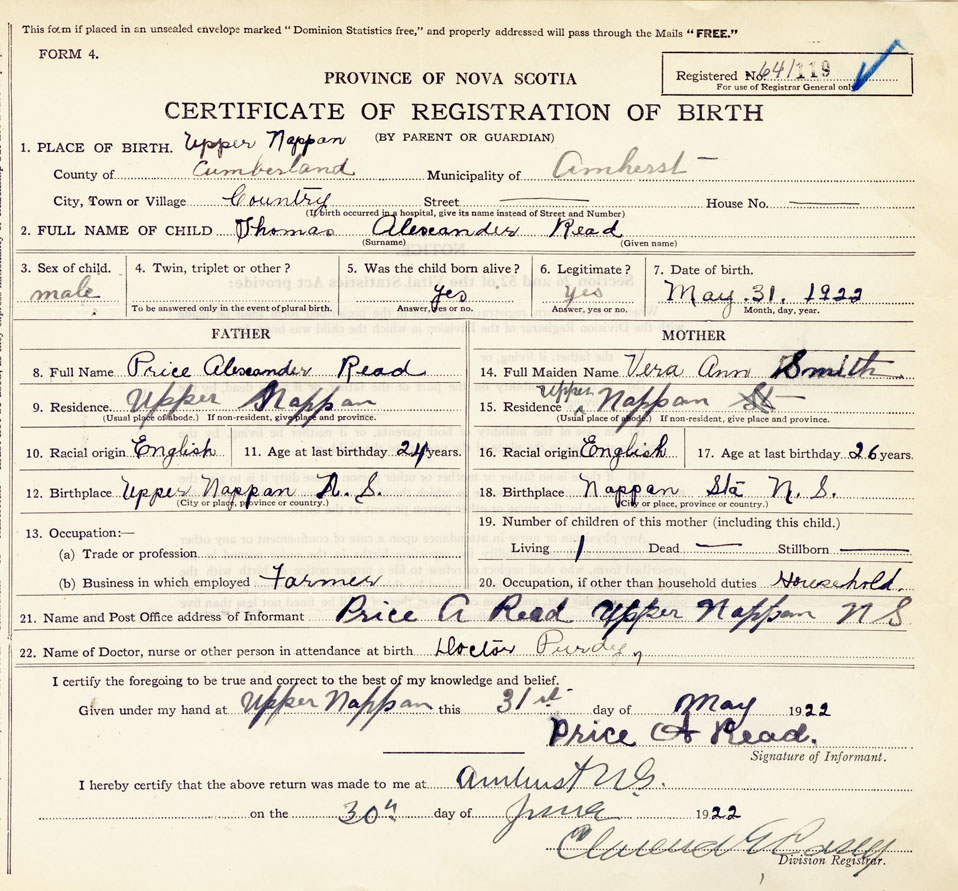 This form if placed in an unsealed envelope marked "Dominion Statistics free," and properly addressed will pass through the Mails "FREE."
FORM 4.
PROVINCE OF NOVA SCOTIA
Registered No. 64/119
For use of Registrar General only
CERTIFICATE OF REGISTRATION OF BIRTH
(BY PARENT OR GUARDIAN)
1. PLACE OF BIRTH. Upper Nappan
County of Cumberland Municipality of Amherst
City, Town or Village Country Street House No.
(If birth occurred in a hospital, give its name instead of Street and Number)
2. FULL NAME OF CHILD Thomas Alexander Read
(Surname) (Given name)
3. Sex of child. 4. Twin, triplet or other? 5. Was the child born alive? 6. Legitimate? 7. Date of birth.
male yes yes May. 31. 1922
To be answered only in the event of plural birth. Answer, yes or no. Answer, yes or no. Month, day, year.
FATHER MOTHER
8. Full Name Price Alexander Read 14. Full Maiden Name Vera Ann Smith
9. Residence Upper Nappan 15. Residence Upper Nappan
(Usual place of abode.) If non-resident, give place and province. (Usual place of abode.) If non-resident, give place and province.
10. Racial origin English 11. Age at last birthday 24 years. 16. Racial origin English 17. Age at last birthday 26 years.
12. Birthplace Upper Nappan N. S. 18. Birthplace Nappan Sta N. S.
(City or place, province or country.) (City or place, province or country.)
13. Occupation:— 19. Number of children of this mother (including this child.)
(a) Trade or profession Living 1 Dead — Stillborn —
(b) Business in which employed Farmer 20. Occupation, if other than household duties Household.
21. Name and Post Office address of Informant Price A Read Upper Nappan N S
22. Name of Doctor, nurse or other person in attendance at birth Doctor Purdy
I certify the foregoing to be true and correct to the best of my knowledge and belief.
Given under my hand at Upper Nappan this 31st day of May 1922
Price A Read.
Signature of Informant.
I hereby certify that the above return was made to me at Amherst N.S.
on the 30th day of June 1922
Division Registrar.